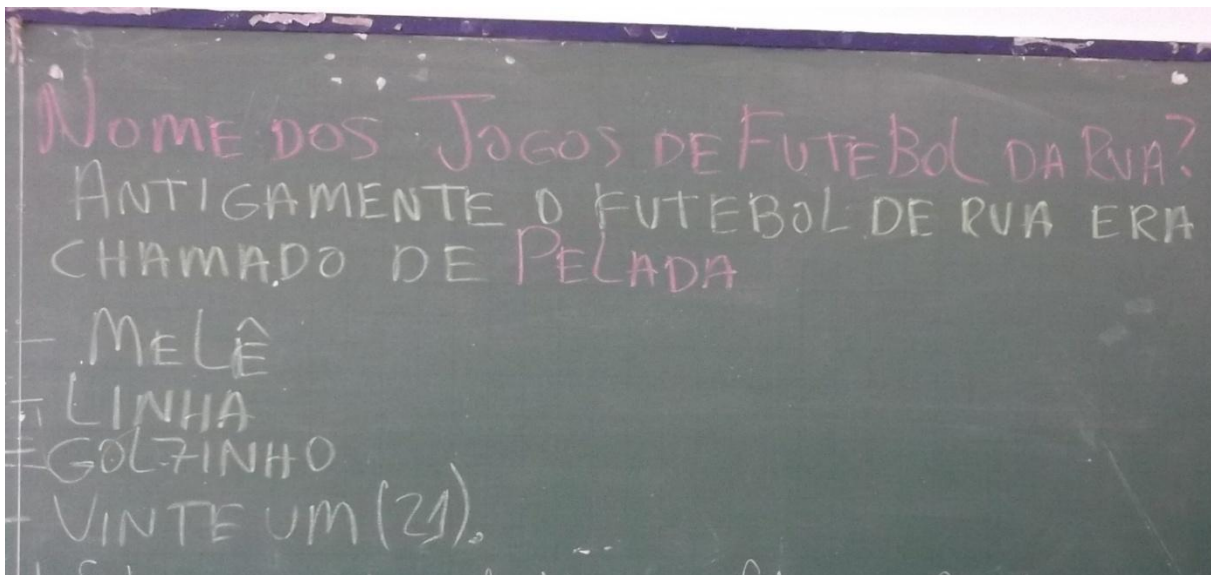 NOME DOS JOGOS DE FUTEBOL DA RUA?
ANTIGAMENTE O FUTEBOL DE RUA ERA
CHAMADO DE PELADA
- MELÊ
- LINHA
- GOLZINHO
- VINTE UM (21).